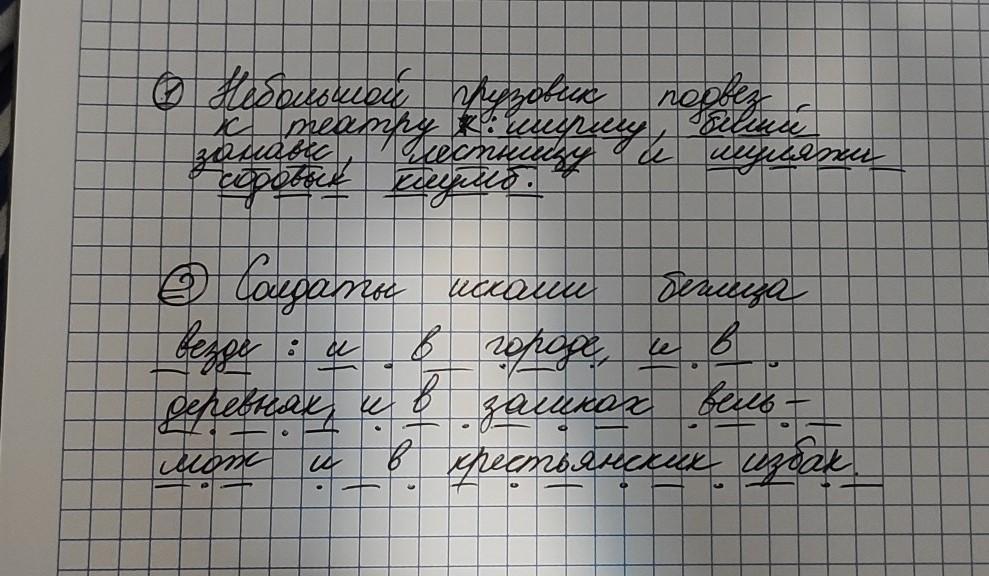 ① Небольшой грузовик подвез
к театру : ширму, белый
занавес, лестницу и муляжи
садовых клумб.
② Солдаты искали беглеца
везде : и в городе, и в
деревнях, и в замках вель-
мож и в крестьянских избах.